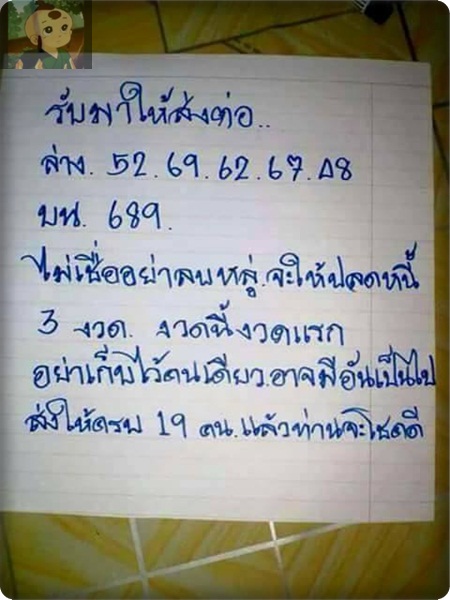 รับมาให้ส่งต่อ..
ล่าง. 52. 69. 62. 67. 08
บน. 689.
ไม่เชื่ออย่าลบหลู่.จะให้ปลดหนี้
3 งวด. งวดนี้งวดแรก
อย่าเก็บไว้คนเดียว.อาจมีอันเป็นไป
ส่งให้ครบ 19 คน.แล้วท่านจะโชคดี